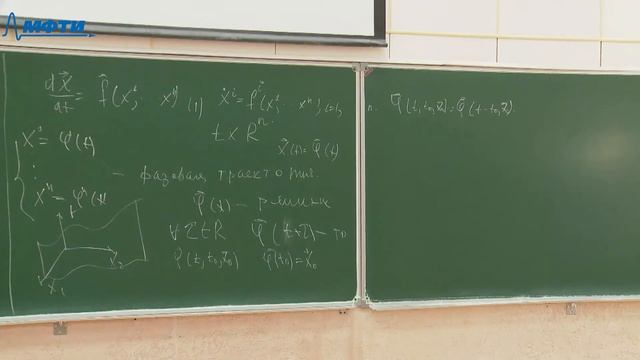 МФТИ
dx⃗/dt = f⃗(x¹, ... xⁿ) (1) ẋⁱ = fⁱ(x¹, ... xⁿ), i=1, n.
t × Rⁿ
x¹ = φ¹(t)
x⃗(t) = φ⃗(t)
⋮
– фазовая траектория.
xⁿ = φⁿ(t)
φ⃗(t) – решение
t
∀ τ ∈ R φ⃗(t+τ) – то
x₂
φ(t, t₀, x₀) φ⃗(t₀) = x⃗₀
x₁
φ⃗(t, t₀, x⃗₀) = φ⃗(t-t₀, x⃗₀)